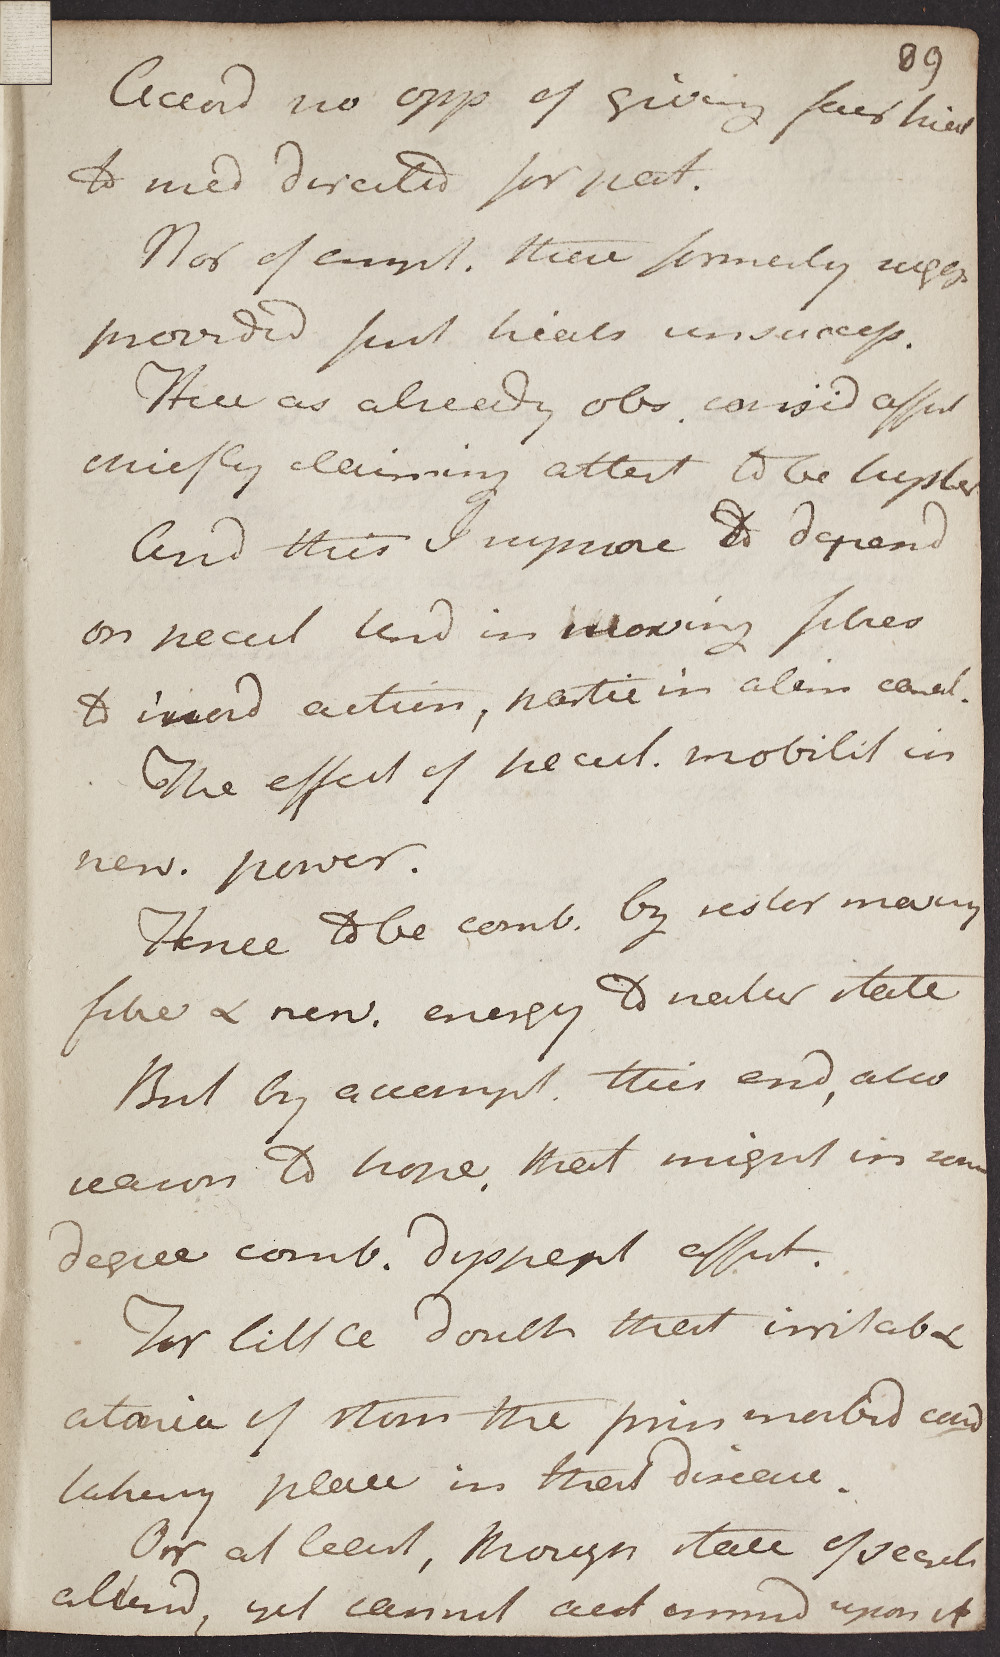 89
Accord no opp of giving furr trial
to med directed for pat.
Nor of empl. those formerly sugg
provided first trials unsuccess.
Here as already obs. consid affect
chiefly claiming attent to be hyster
And this I suppose to depend
on pecul tend in moving fibres
to inord action, partic in alim canal.
The effect of pecul. mobilit in
nerv. power.
Hence to be comb. by restor moving
fibre & nerv. energy to natur state
But by accompl. this end, also
reason to hope, that might in some
degree comb. dyspept affect.
For little doubt that irritab &
atonia of stom the prim morbid cond
taking place in that disease.
Or at least, though state of
attend, yet cannot act immed upon it